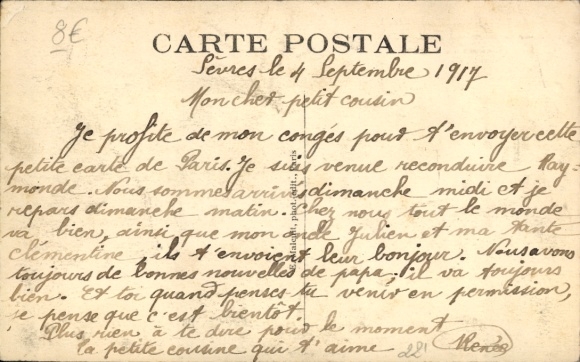 8€
CARTE POSTALE
Sèvres le 4 Septembre 1917
Mon cher petit cousin
Je profite de mon congés pour t'envoyer cette
petite carte de Paris. Je suis venue reconduire Ray-
monde. Nous sommes arrivés dimanche midi et je
repars dimanche matin. Chez nous tout le monde
va bien, ainsi que mon oncle Julien et ma tante
clémentine, ils t'envoient leur bonjour. Nous avons
toujours de bonnes nouvelles de papa, il va toujours
bien. Et toi quand penses tu venir en permission,
je pense que c'est bientôt.
Plus rien à te dire pour le moment
la petite cousine qui t'aime
Renée
22'